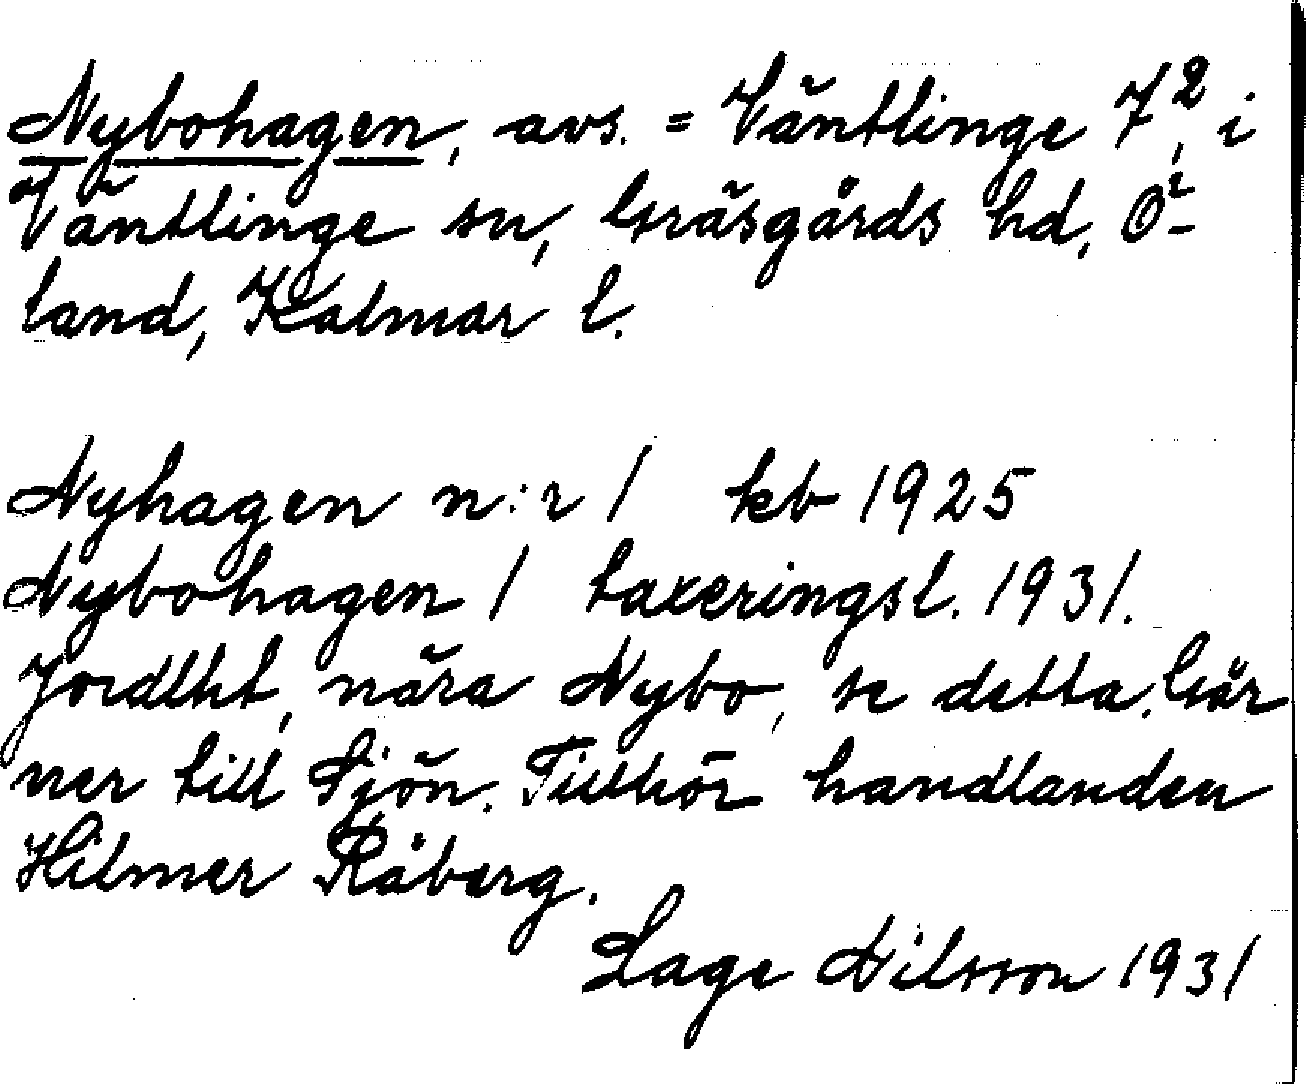 Nybohagen, avs. = Väntlinge 7², i
Väntlinge sn, Gräsgårds hd, Ö-
land, Kalmar l.
Nyhagen n:r 1 kb 1925
Nybohagen 1 taxeringsl. 1931.
Jordlht, nära Nybo, se detta. Går
ner till Sjön. Tillhör handlanden
Hilmer Råberg.
Lage Nilsson 1931